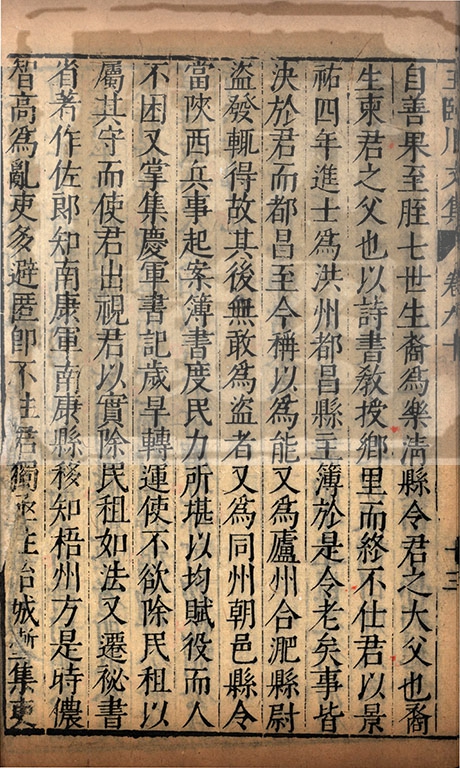 王臨川文集 卷九十 十三
自善果至胵七世生裔為樂淸縣令君之大父也裔
生柬君之父也以詩書敎授鄉里而終不仕君以景
祐四年進士為洪州都昌縣主簿於是令老矣事皆
決於君而都昌至今稱以為能又為廬州合淝縣尉
盜發輒得故其後無敢為盜者又為同州朝邑縣令
當陜西兵事起案簿書度民力所堪以均賦役而人
不困又掌集慶軍書記歲旱轉運使不欲除民租以
屬其守而使君出視君以實除民租如法又遷祕書
省著作佐郎知南康軍南康縣移知梧州方是時儂
智高為亂吏多避匿卽不往君獨亟往治城塹集吏